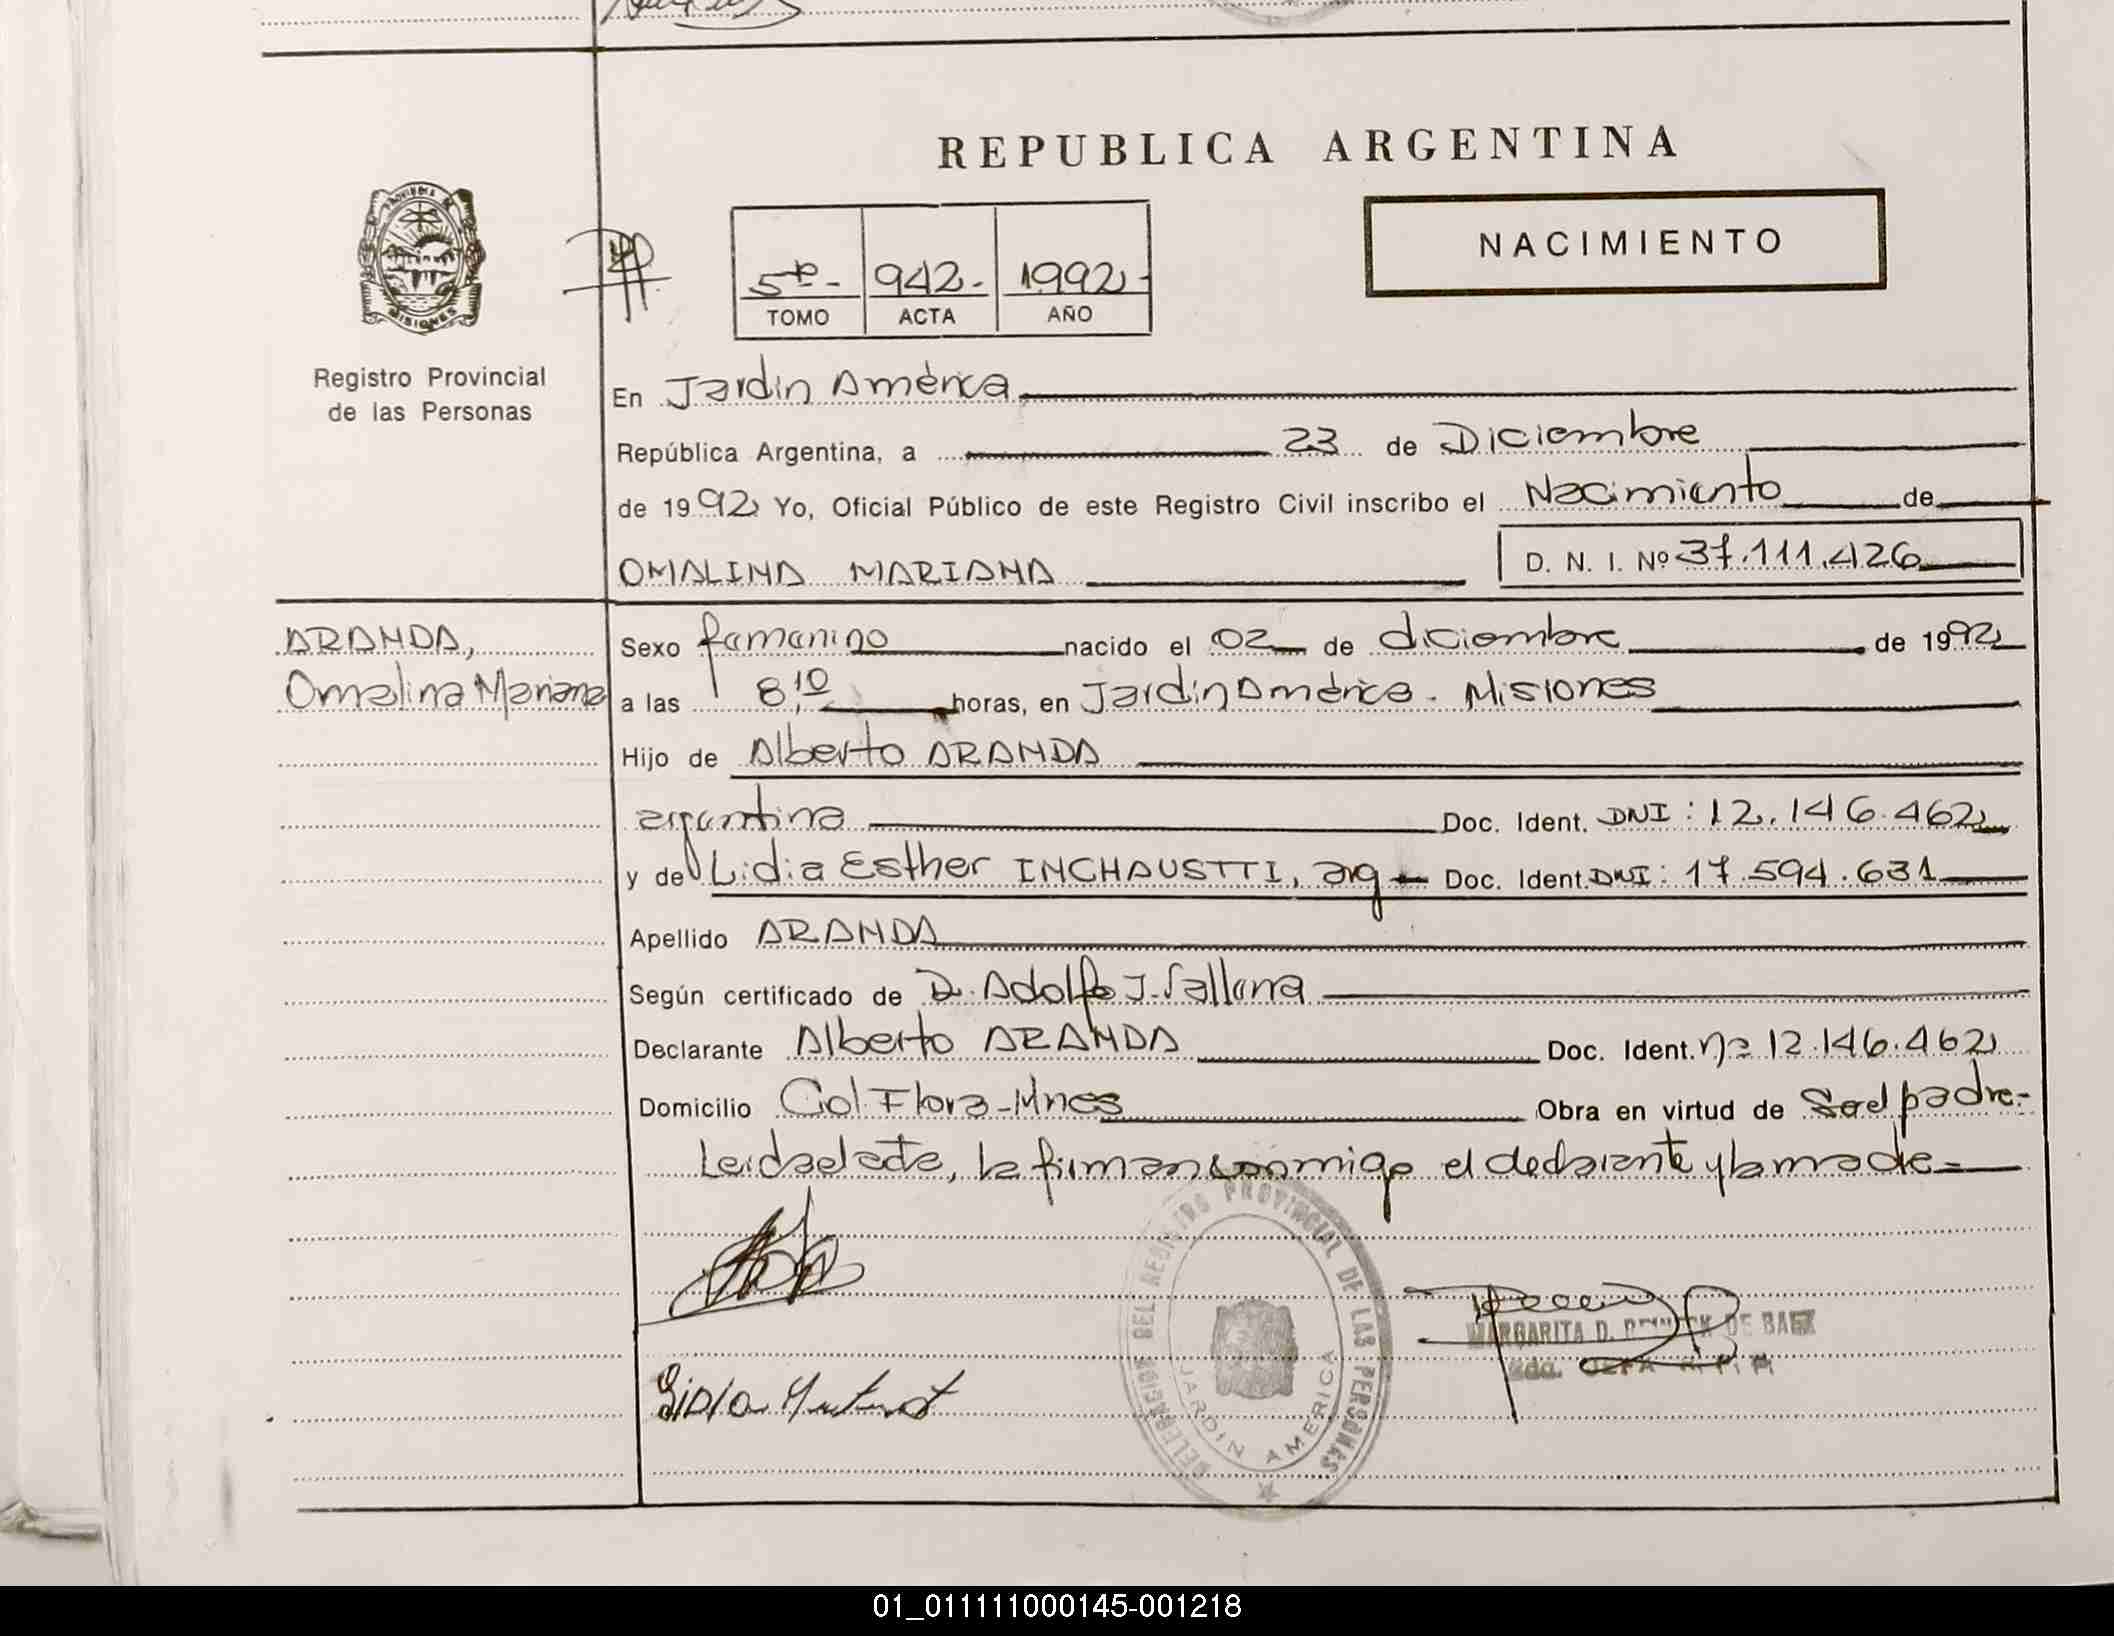 REPUBLICA ARGENTINA
NACIMIENTO
PROVINCIA DE
MISIONES
5to - 942 - 1992 -
TOMO ACTA AÑO
Registro Provincial
de las Personas
En Jardin América
República Argentina, a 23 de Diciembre
de 1992 Yo, Oficial Público de este Registro Civil inscribo el Nacimiento de
OMALINA MARIANA D. N. I. Nº 37.111.426
ARANDA,
Omalina Mariana
Sexo femenino nacido el 02 de diciembre de 1992
a las 8,10 horas, en Jardin América - Misiones
Hijo de Alberto ARANDA
argentina Doc. Ident. DNI: 12.146.462
y de Lidia Esther INCHAUSTTI, arg - Doc. Ident. DNI: 17.594.631
Apellido ARANDA
Según certificado de D. Adolfo J.
Declarante Alberto ARANDA Doc. Ident. nº 12.146.462
Domicilio Col Flora - Mnes Obra en virtud de Ser el padre.-
Leida el acta, la firman conmigo el declarante y la madre =
DELEGACION DEL REGISTRO PROVINCIAL DE LAS PERSONAS
JARDIN AMERICA
MARGARITA D. DE BAEZ
01_011111000145-001218